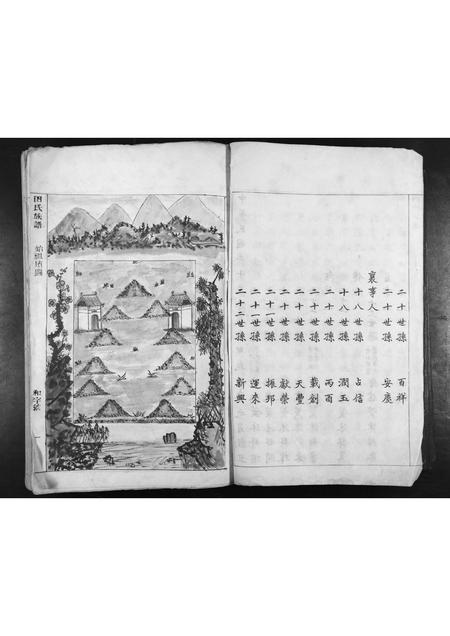 二十世孫 百祥
二十世孫 安慶
襄事人
十八世孫 占信
十八世孫 潤玉
二十世孫 丙酉
二十世孫 載創
二十世孫 天豐
二十世孫 獻榮
二十一世孫 振邦
二十一世孫 運來
二十二世孫 新興
田氏族譜
始祖塋圖
一